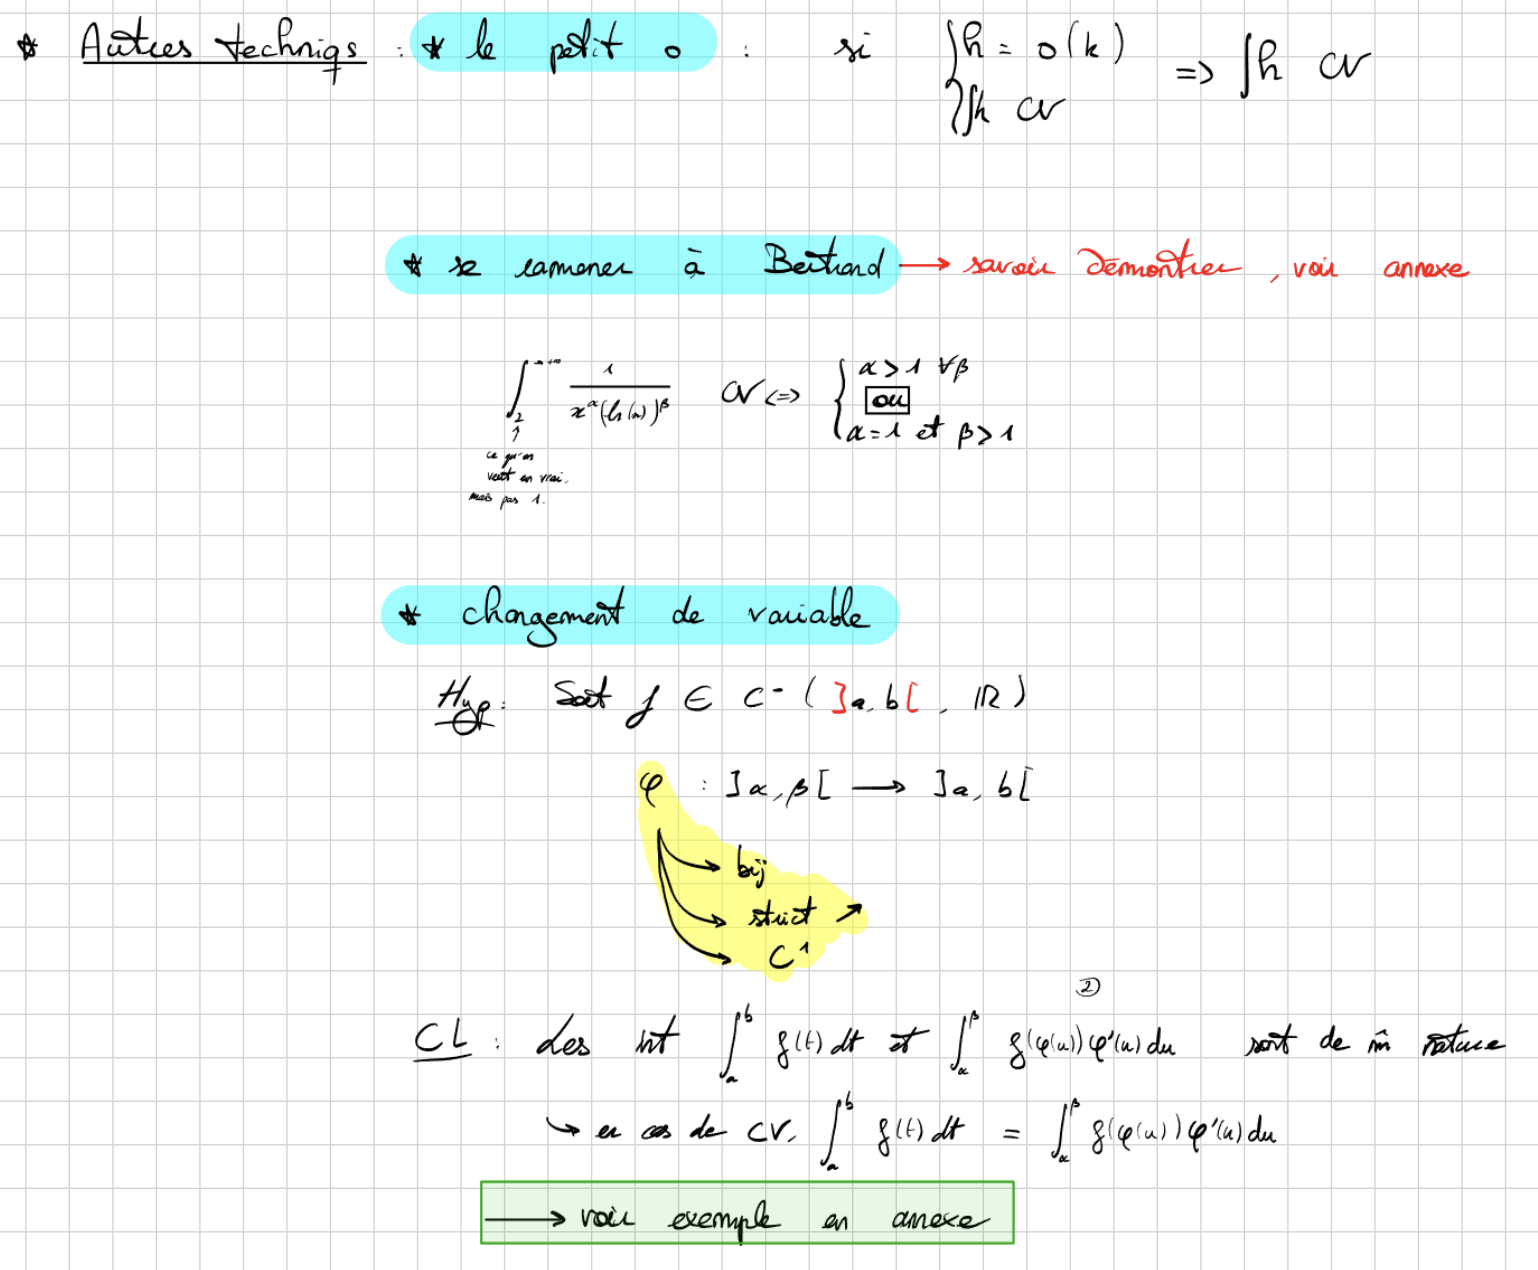 * Autres techniqs : * le petit o : si { h = o(k) => ∫h CV
∫k CV
* se ramener à Bertrand → savoir démontrer, voir annexe
∫₂^{+∞} 1/(x^α (ln(x))^β) CV <=> { α > 1 ∀β
ou
α = 1 et β > 1
↑
ce qu'on
veut en vrai.
mais pas 1.
* changement de variable
Hyp : Soit f ∈ C° ( ]a, b[ , ℝ )
φ : ]α, β[ → ]a, b[
→ bij
→ strict ↗
→ C¹
②
CL : Les int ∫_a^b f(t) dt et ∫_α^β f(φ(u)) φ'(u) du sont de m̂ nature
↳ en cas de CV, ∫_a^b f(t) dt = ∫_α^β f(φ(u)) φ'(u) du
→ voir exemple en annexe